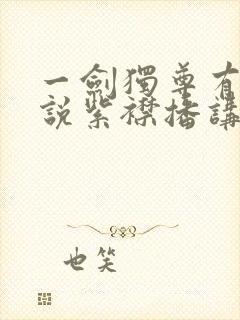 一劍獨尊有
說紫襟播講
也笑